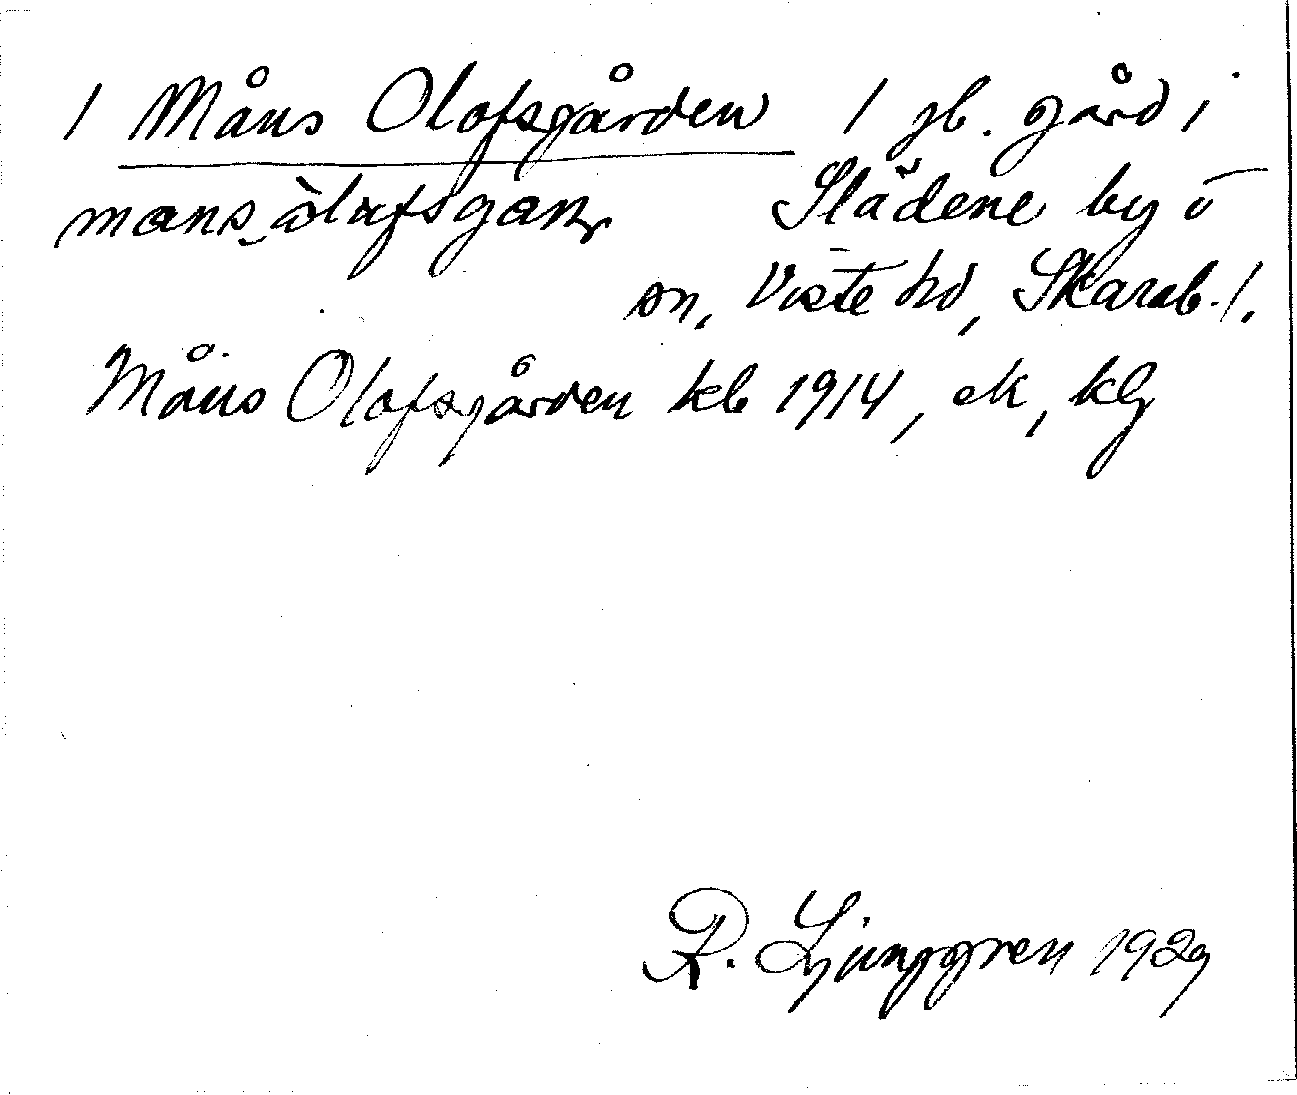 1 Måns Olofsgården 1 jb. gård i
Slädene by o
sn, Viste hd, Skarab. l.
Måns Olofsgården kb 1914, ek, klg
R. Ljunggren 1929